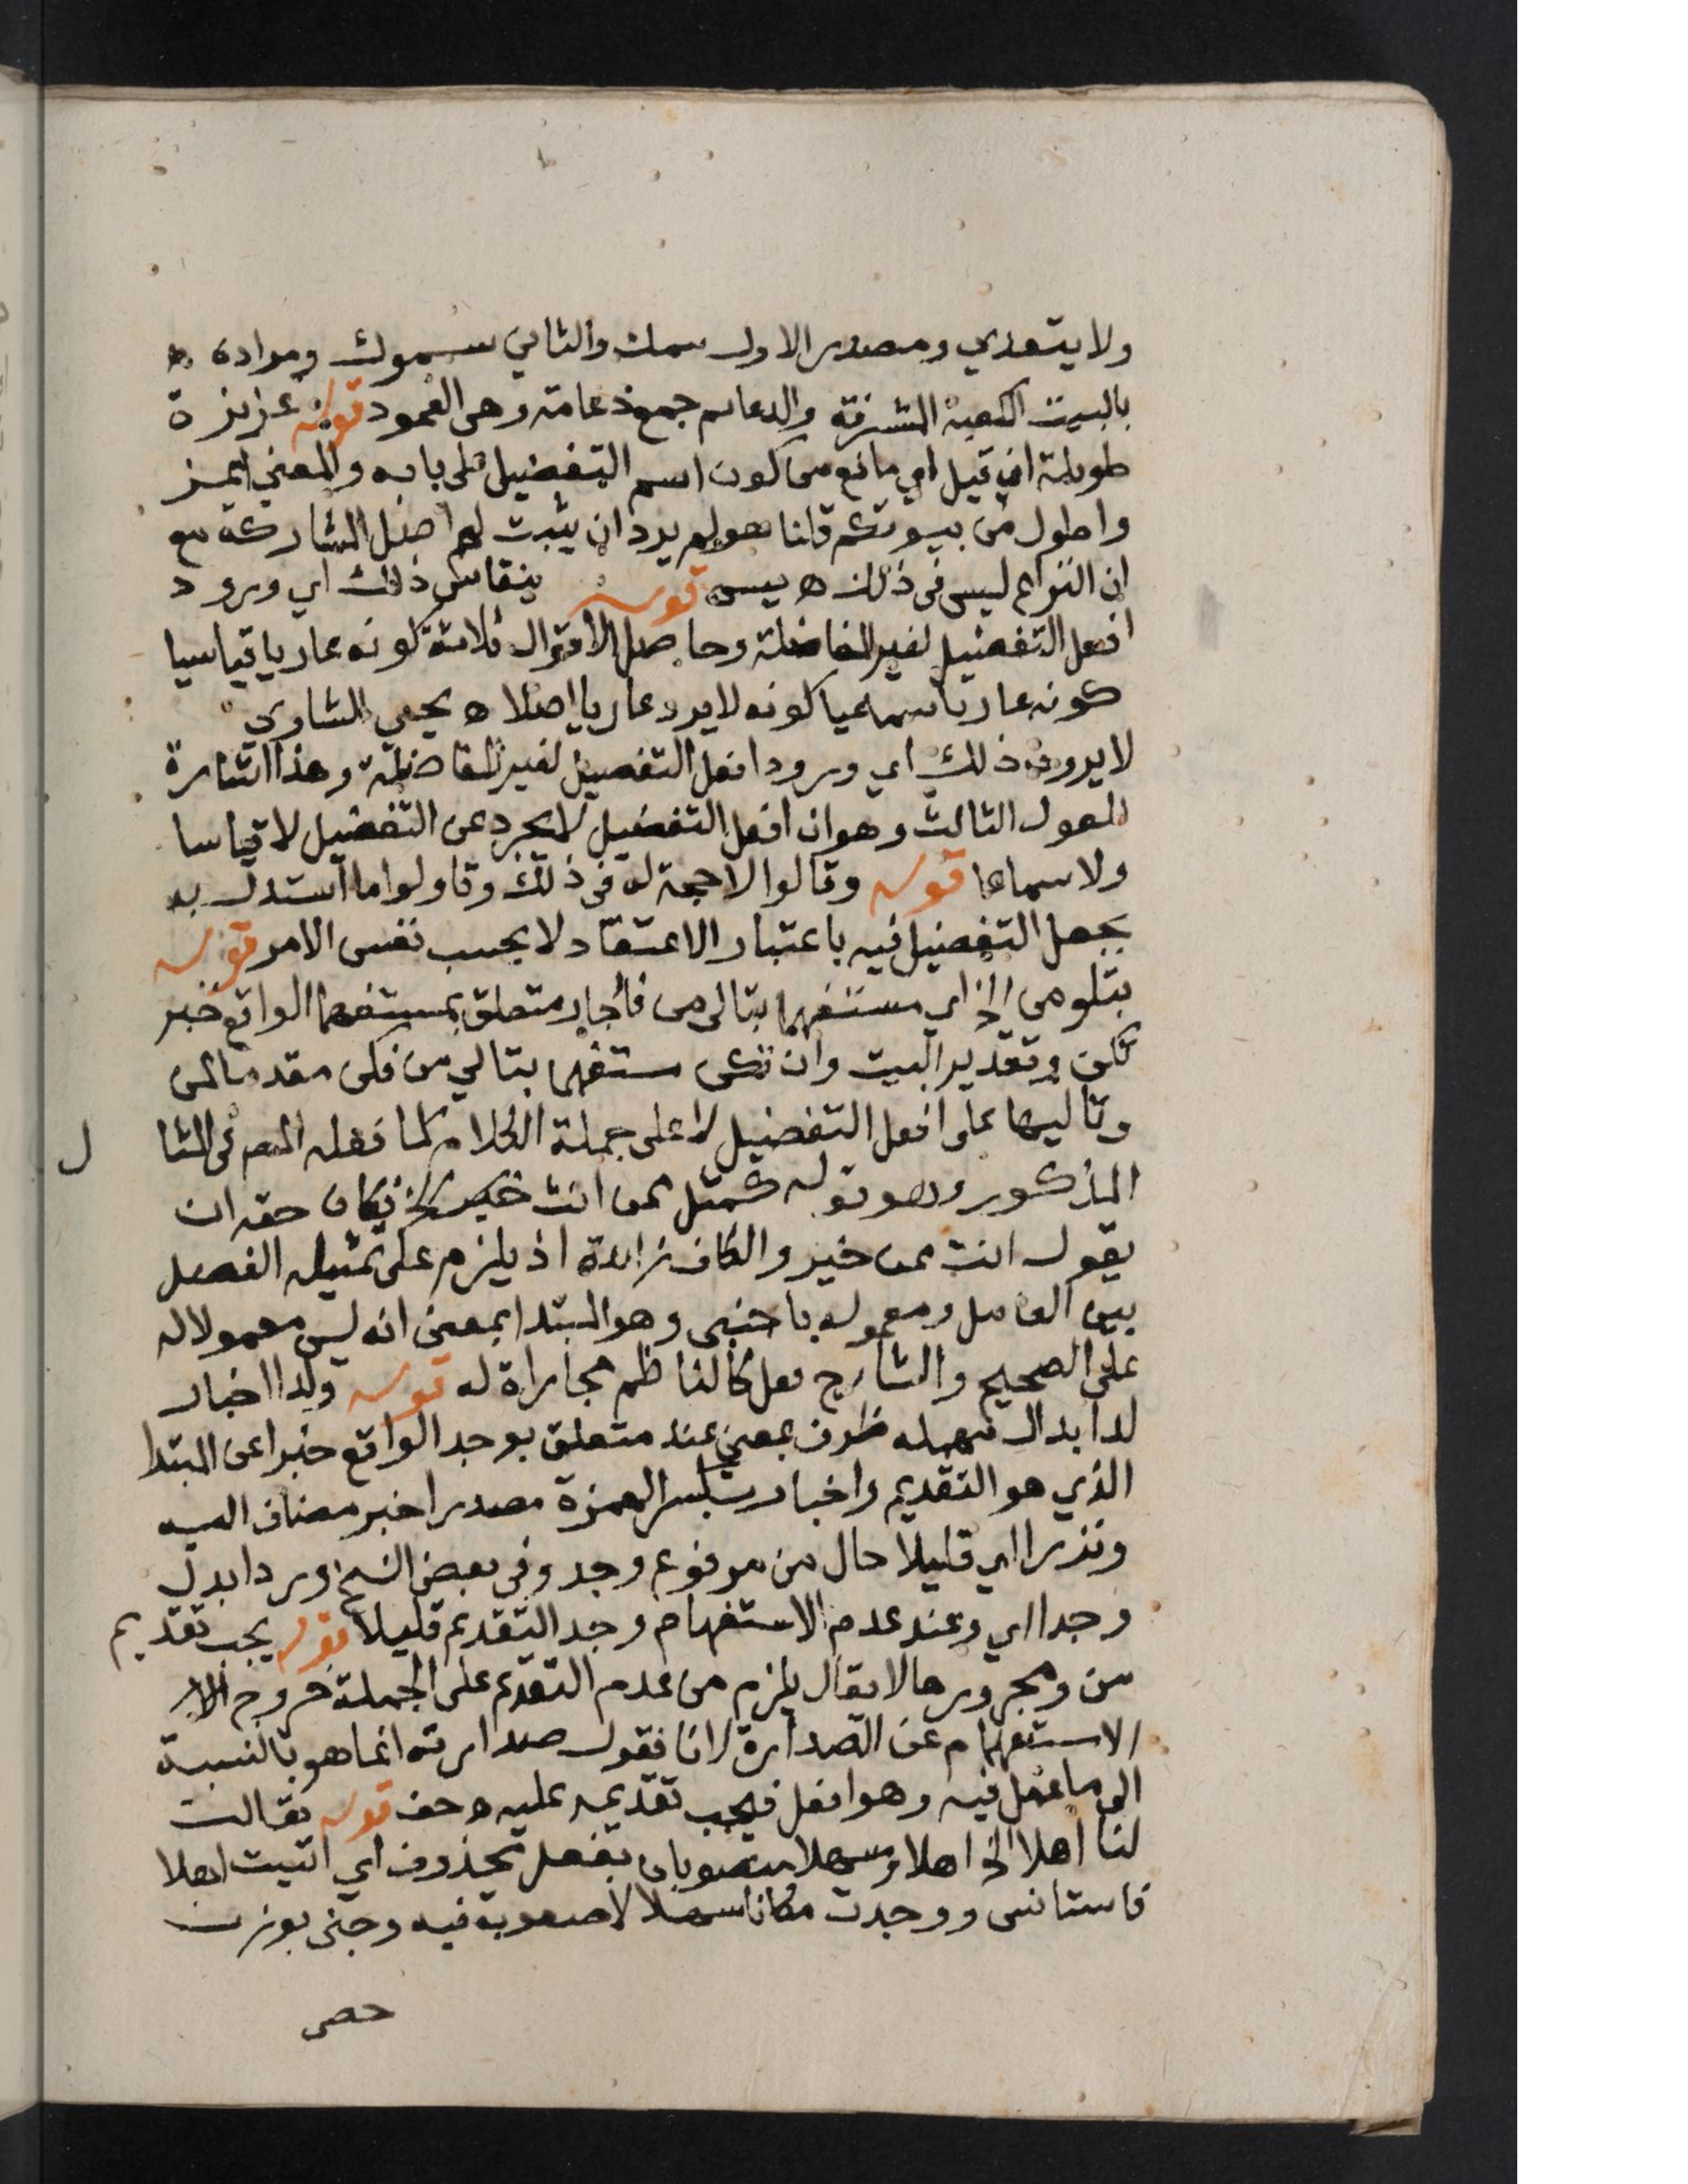 ولا يتعدي ومصدر الاول سمك والثاني سموك ومراده ه
بالبيت الكعبة المشرفة والدعائم جمع دعامة وهى العمود قوله عزيزة
طويلة اي قيل اي مانع من كون اسم التفضيل على بابه والمعني اعز
واطول من بيوتكم قلنا هو لم يرد ان يثبت لهم اصل المشاركة مع
ان النزاع ليس فى ذلك ه يس قوله ينقاس ذلك اي ورود
افعل التفضيل لغير المفاضلة وحاصل الاقوال ثلاثة كونه عاريا قياسيا
كونه عاريا سماعيا كونه لا يرد عاريا اصلا ه يحيي الشاوي
لا يرون ذلك اي ورود افعل التفضيل لغير المفاضلة وهذا اشارة
للقول الثالث وهو ان افعل التفضيل لا يجرد عن التفضيل لا قياسا
ولا سماعا قوله وقالوا لا حجة له فى ذلك وتاولوا ما استدل به
بجعل التفضيل فيه باعتبار الاعتقاد لا بحسب نفس الامر قوله
بتلو من الخ اي مستفهما بتالى من فالجار متعلق بمستفهما الواقع خبر
تكن وتقدير البيت وان تكن مستفهما بتالي من فكن مقدما لمن
وتاليها على افعل التفضيل لا على جملة الكلام كما فعله المصه فى المثا ل
المذكور وهو قوله كمثل ممن انت خير الخ فكان حقه ان
يقول انت ممن خير والكاف زائدة اذ يلزم على تمثيله الفصل
بين العامل ومعموله باجنبى وهو المبتدا بمعنى انه ليس معمولا له
على الصحيح والشارح فعل كالناظم مجاراة له قوله ولدا اخبار
لدا بدال مهمله ظرف بمعني عند متعلق بوجد الواقع خبرا عن المبتدا
الذي هو التقديم واخبار بكسر الهمزة مصدر اخبر مضاف اليه
ونزرا اي قليلا حال من مرفوع وجد وفى بعض النسخ وردا بدل
وجدا اي وعند عدم الاستفهام وجد التقديم قليلا قوله يجب تقديم
من ومجرورها لا يقال يلزم من عدم التقدم على الجملة خروج الا
الاستفهام عن الصدارة لانا نقول صدارته انما هو بالنسبة
الى ما عمل فيه وهو افعل فيجب تقديمه عليه ه حف قوله فقالت
لنا اهلا الخ اهلا وسهلا منصوبان بفعل محذوف اي اتيت اهلا
فاستانس ووجدت مكانا سهلا لا صعوبة فيه وجنى بوزن
حصى